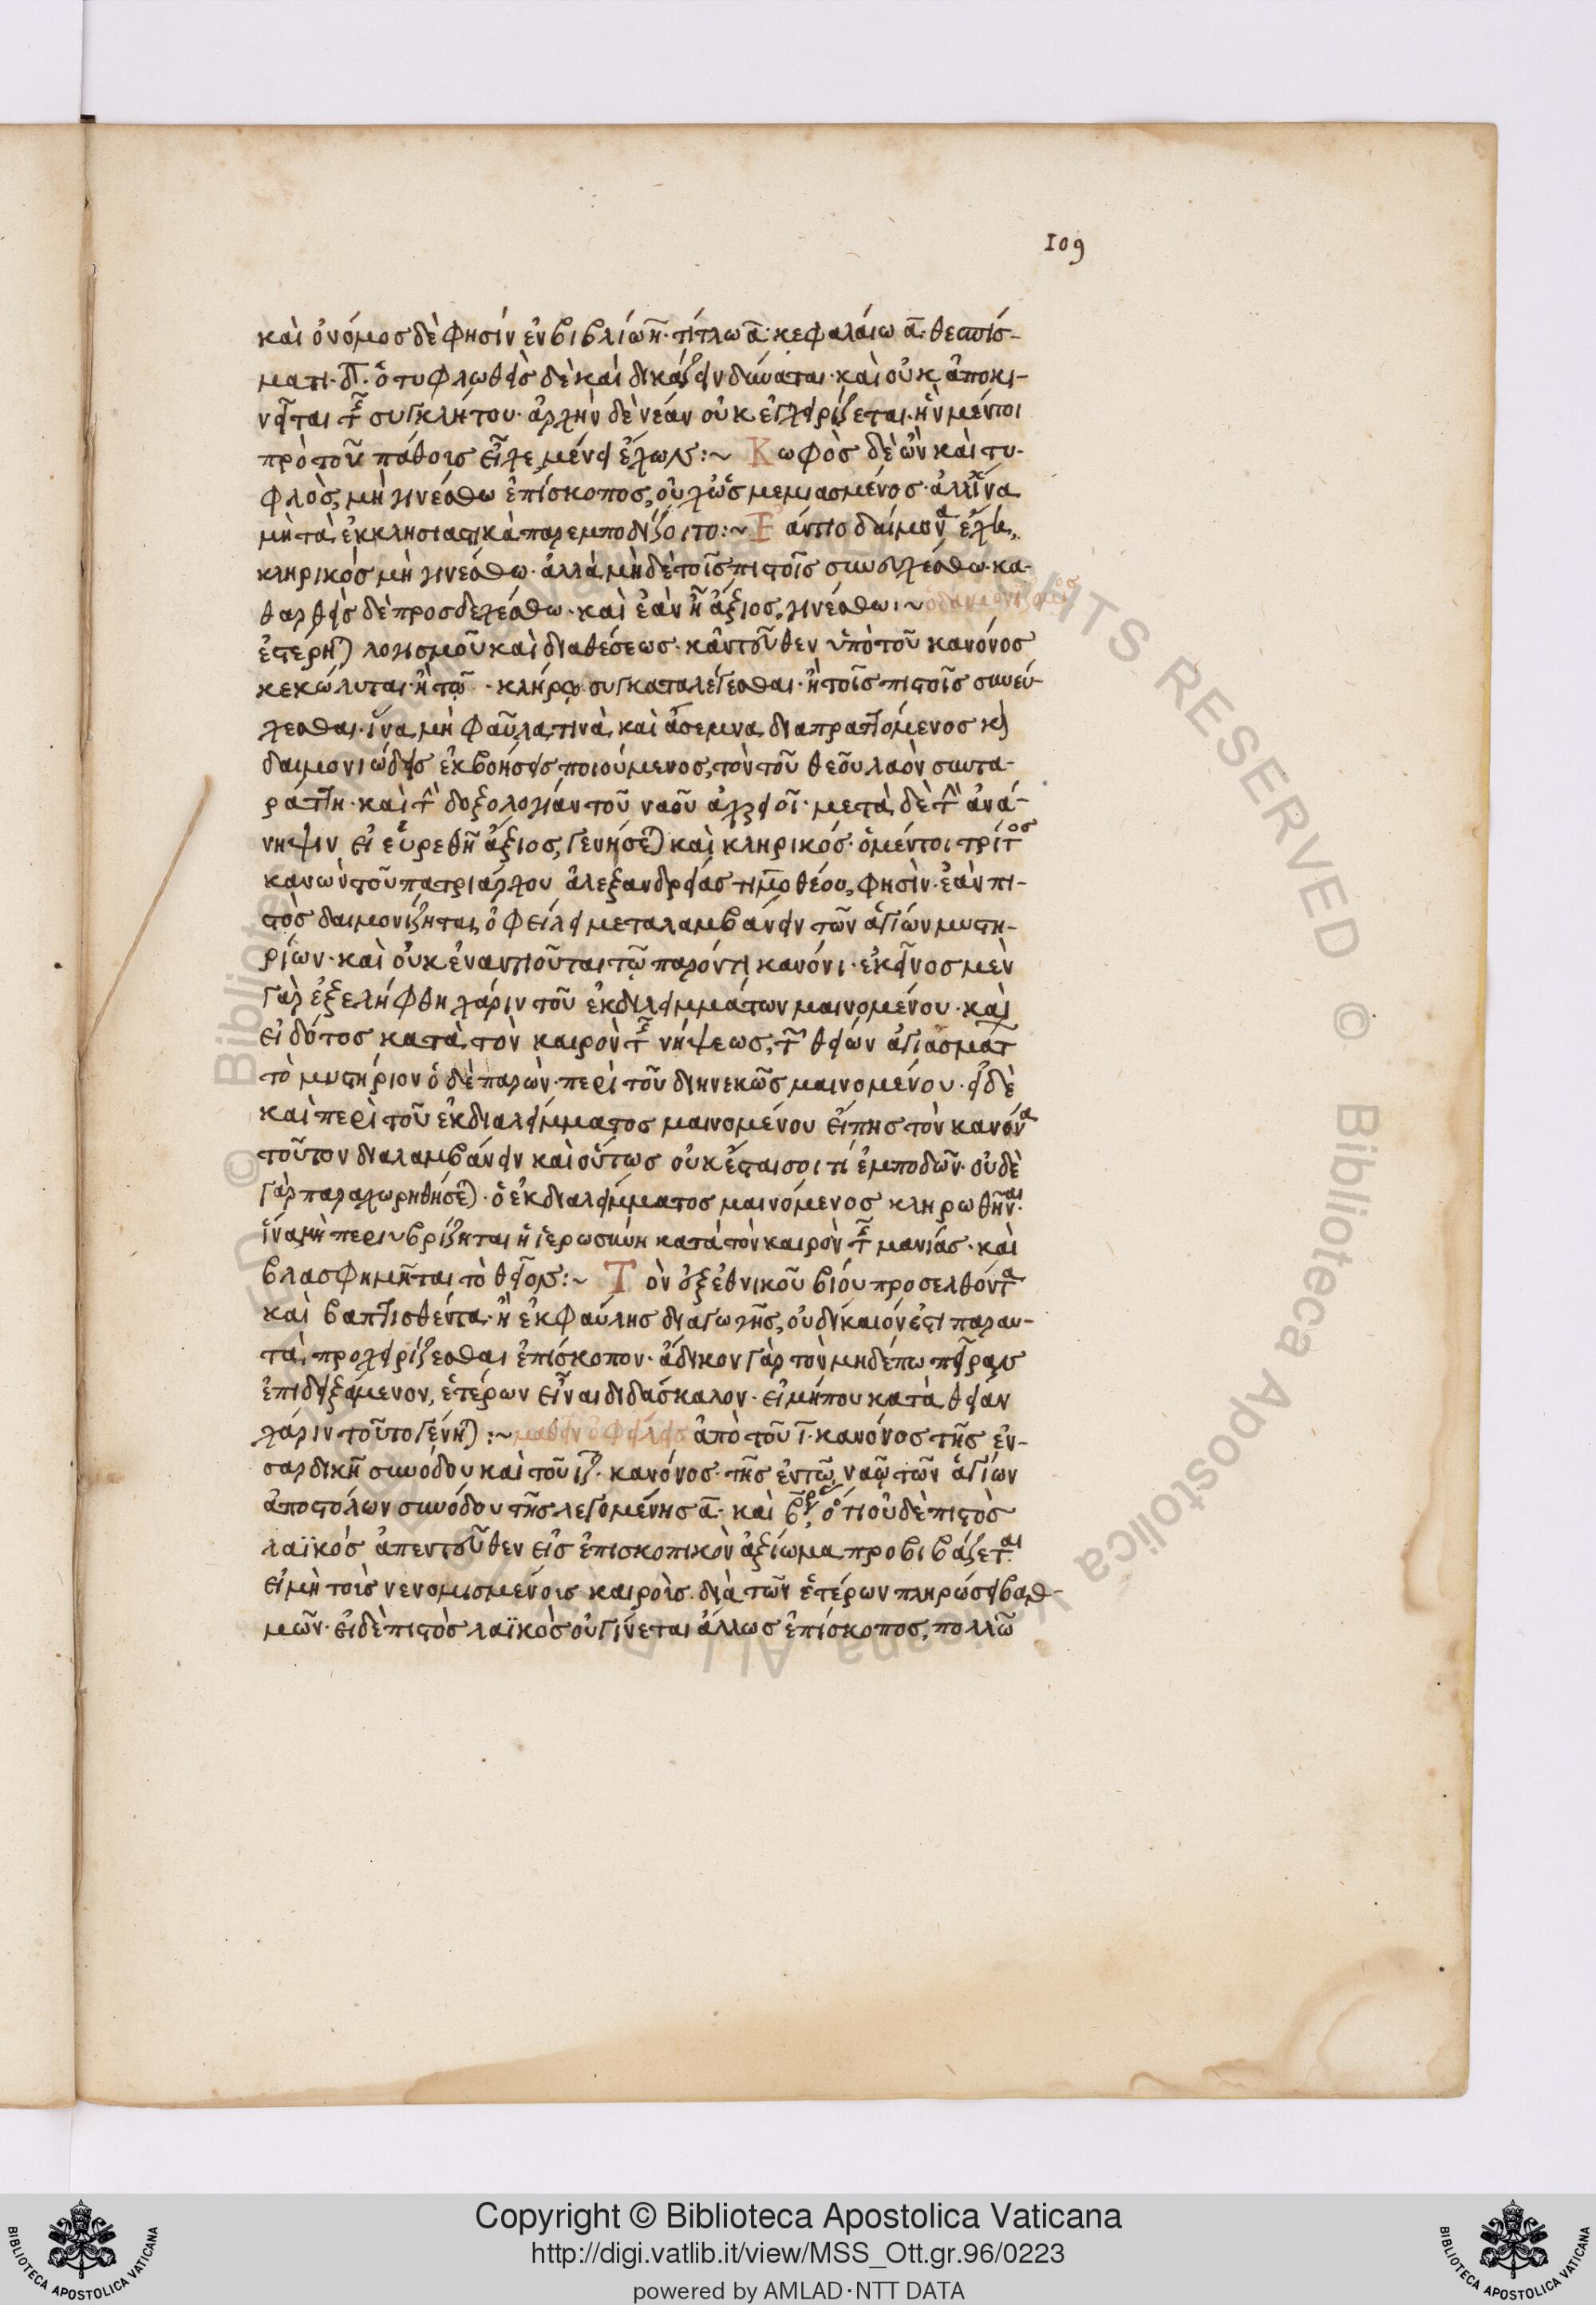 109
καὶ ὁ νόμος δὲ φησὶν ἐν βιβλίω η̅· τίτλω α̅· κεφαλαίω α̅· θεσπίσ-
ματι· δ̅· ὁ τυφλωθεὶς δὲ καὶ δικάζειν δύναται· καὶ οὐκ ἀποκι-
νεῖται τῆς συγκλήτου· ἀρχὴν δὲ νέαν οὐκ ἐγχειρίζεται· ἣν μέντοι
πρὸ τοῦ πάθους εἶχε μένει ἔχων:~ Κωφὸς δὲ ὢν καὶ τυ-
φλὸς, μὴ γινέσθω ἐπίσκοπος, οὐχ ὡς μεμιασμένος· ἀλλ' ἵνα
μὴ τὰ ἐκκλησιαστικὰ παρεμποδίζοιτο:~ Ἐάν τις δαίμονα ἔχη,
κληρικὸς μὴ γινέσθω· ἀλλὰ μὴ δὲ τοῖς πιστοῖς συνευχέσθω· κα-
θαρθεὶς δὲ προσδεχέσθω· καὶ ἐὰν ἦ ἄξιος, γινέσθω:~ ὁ δαιμονιζόμενος
ἐστέρηται λογισμοῦ καὶ διαθέσεως· κἀντεῦθεν ὑπὸ τοῦ κανόνος
κεκώλυται· ἢ τῶ· κλήρω συγκαταλέγεσθαι· ἢ τοῖς πιστοῖς συνεύ-
χεσθαι· ἵνα μὴ φαῦλα τινὰ καὶ ἄσεμνα διαπραττόμενος καὶ
δαιμονιώδεις ἐκβοήσεις ποιούμενος, τὸν τοῦ θεοῦ λαὸν συντα-
ράττη· καὶ τὴν δοξολογίαν τοῦ ναοῦ ἀργεῖ· μετὰ δὲ τὴν ἀνά-
νηψιν εἰ εὑρεθῆ ἄξιος, γενήσεται καὶ κληρικός· ὁ μέντοι τρίτος
κανὼν τοῦ πατριάρχου ἀλεξανδρείας τιμοθέου, φησὶν· ἐὰν πι-
στὸς δαιμονίζηται, ὀφείλει μεταλαμβάνειν τῶν ἁγίων μυστη-
ρίων· καὶ οὐκ ἐναντιοῦται τῶ παρόντι κανόνι· ἐκεῖνος μὲν
γὰρ ἐξελήφθη χάριν τοῦ ἐκ διαλειμμάτων μαινομένου· καὶ
εἰδότος κατὰ τὸν καιρὸν τῆς νήψεως, τῶν θείων ἁγιασμάτων
τὸ μυστήριον ὁ δὲ παρὼν· περὶ τοῦ διηνεκῶς μαινομένου· εἰ δὲ
καὶ περὶ τοῦ ἐκ διαλείμματος μαινομένου εἴπης τὸν κανόνα
τοῦτον διαλαμβάνειν καὶ οὕτως οὐκ ἔσται σοι τί ἐμποδών· οὐδὲ
γὰρ παραχωρηθήσεται· ὁ ἐκ διαλείμματος μαινόμενος κληρωθῆναι·
ἵνα μὴ περιυβρίζηται ἡ ἱερωσύνη κατὰ τὸν καιρὸν τῆς μανίας· καὶ
βλασφημῆται τὸ θεῖον:~ Τὸν ἐξ ἐθνικοῦ βίου προσελθόντα
καὶ βαπτισθέντα· ἢ ἐκ φαύλης διαγωγῆς, οὐ δίκαιόν ἐστι παραυ-
τὰ, προχειρίζεσθαι ἐπίσκοπον· ἄδικον γὰρ τὸν μηδέπω πεῖραν
ἐπιδειξάμενον, ἑτέρων εἶναι διδάσκαλον· εἰ μήπου κατὰ θείαν
χάριν τοῦτο γένηται:~ μαθεῖν ὀφείλεις ἀπὸ τοῦ ι̅· κανόνος τῆς ἐν-
σαρδικῆ συνόδου καὶ τοῦ ιζ· κανόνος τῆς ἐν τῶ ναῶ τῶν ἁγίων
ἀποστόλων συνόδου τῆς λεγομένης α̅· καὶ β̅ας, ὅτι οὐδὲ πιστὸς
λαϊκὸς ἀπεντεῦθεν εἰς ἐπισκοπικὸν ἀξίωμα προβιβάζεται
εἰ μὴ τοῖς νενομισμένοις καιροῖς διὰ τῶν ἑτέρων πληρώσει βαθ-
μῶν· εἰ δὲ πιστὸς λαϊκὸς οὐ γίνεται ἄλλως ἐπίσκοπος, πολλῶ
Copyright © Biblioteca Apostolica Vaticana
http://digi.vatlib.it/view/MSS_Ott.gr.96/0223
powered by AMLAD·NTT DATA